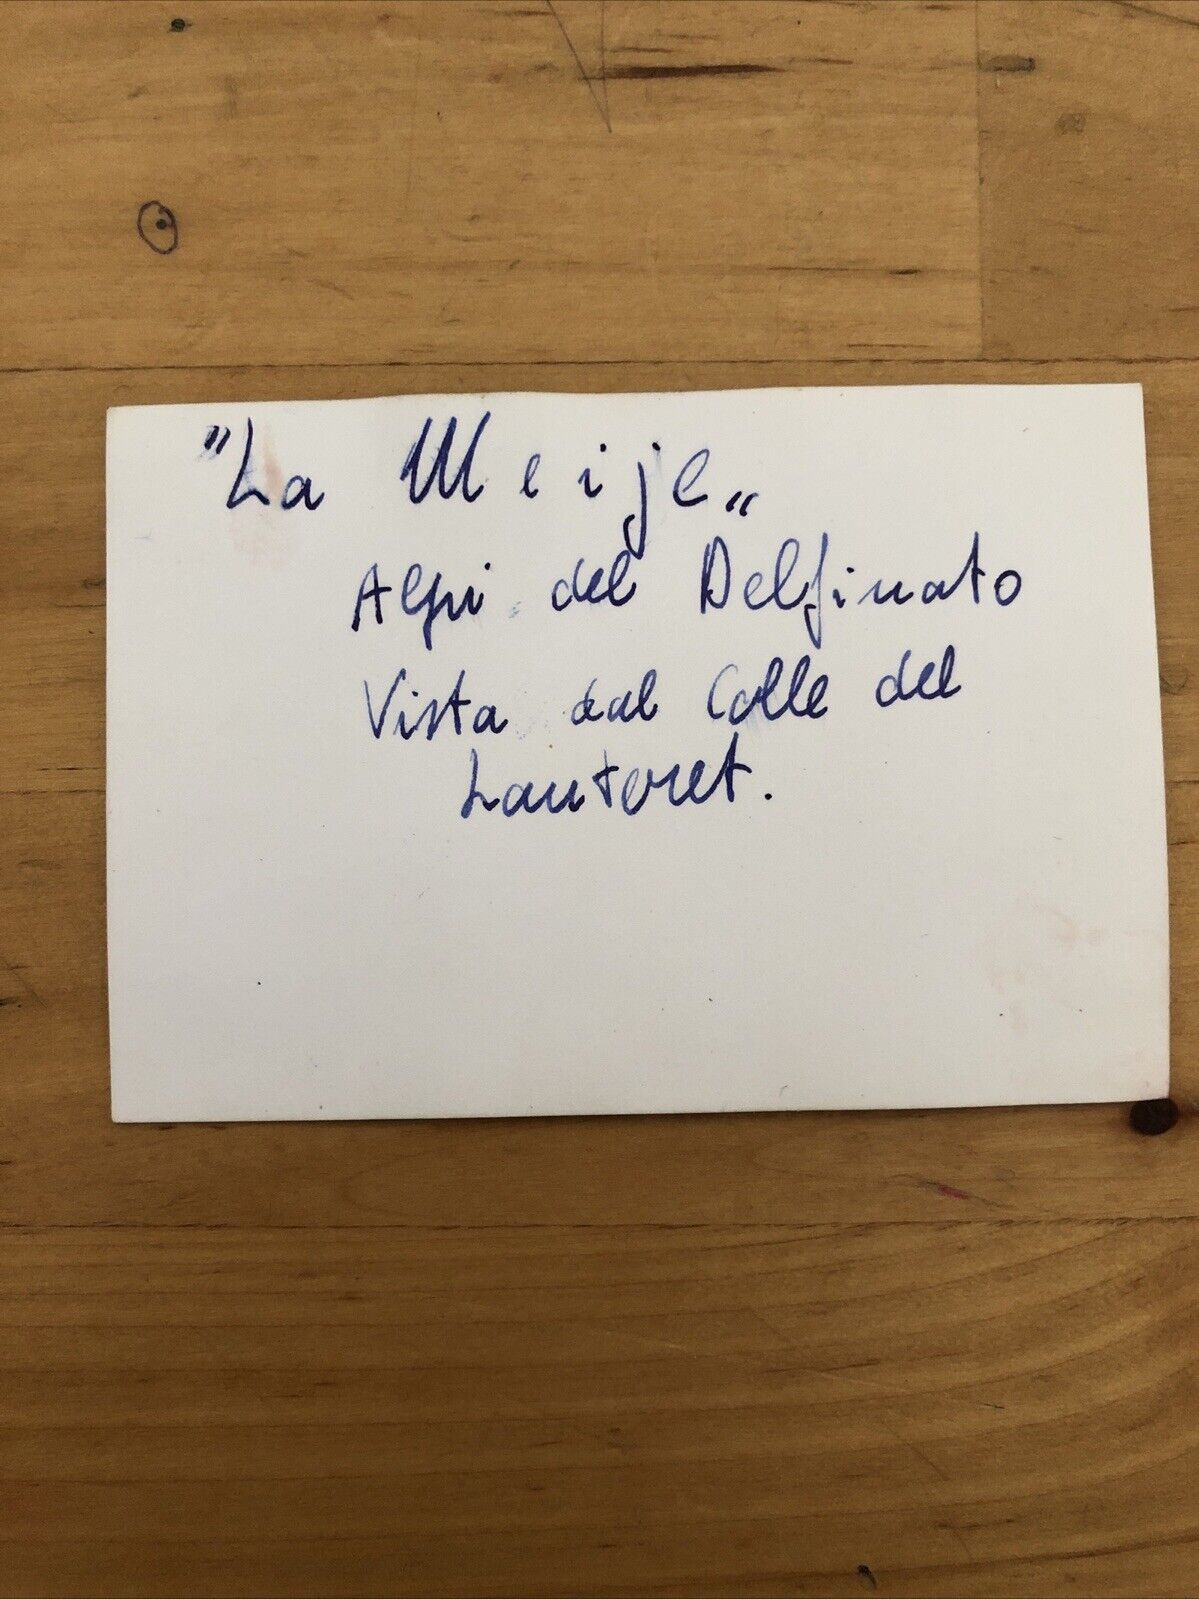 "La Meije"
Alpi del Delfinato
Vista dal Colle del
Lauteret.